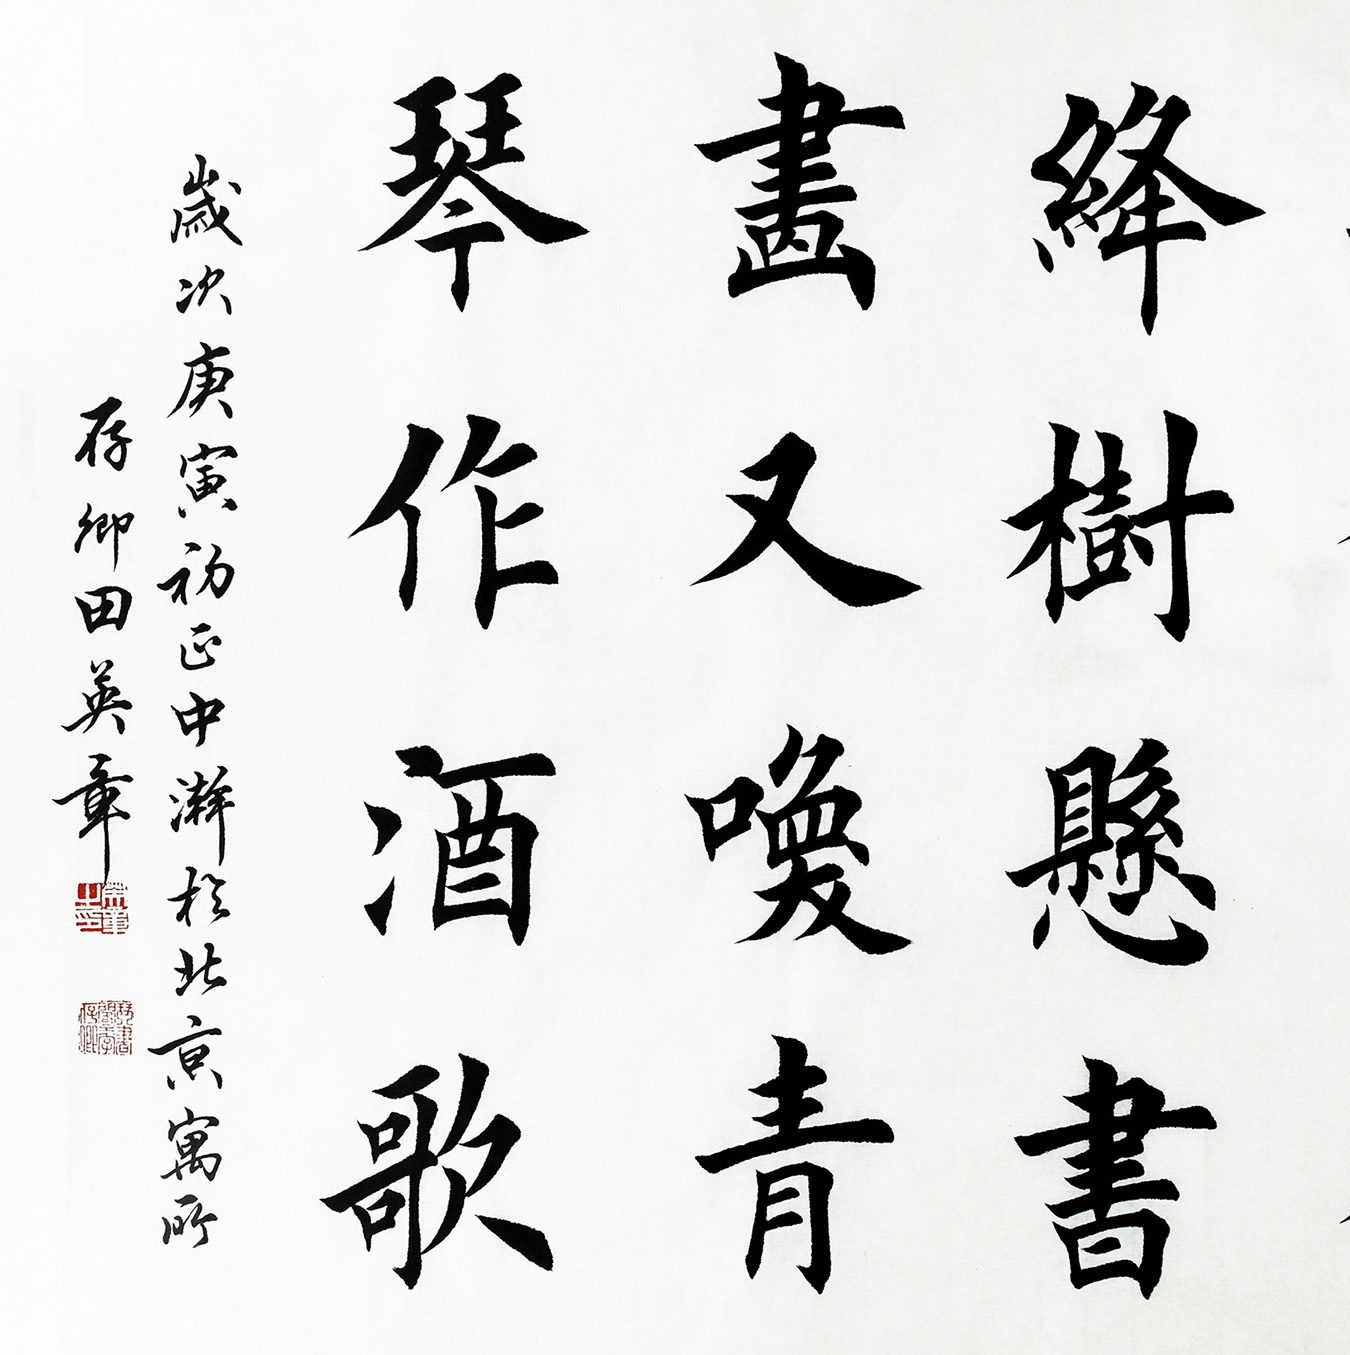 絳樹懸書
畫又喚青
琴作酒歌
歲次庚寅初正中澣於北京寓所
存卿田英章
英章之印